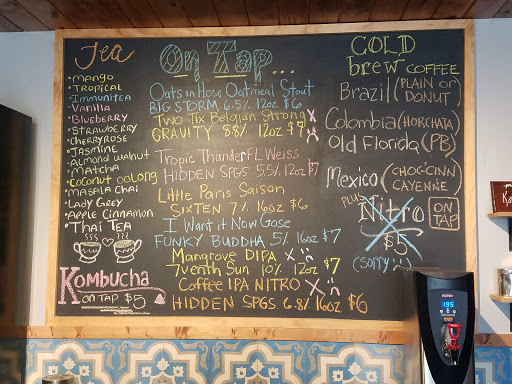 Tea
• Mango
• Tropical
• Immunitea
• Vanilla
• Blueberry
• Strawberry
• Cherryrose
• Jasmine
• Almond walnut
• Matcha
• Coconut oolong
• Masala Chai
• Lady Grey
• Apple Cinnamon
• Thai Tea
Kombucha
on tap $5
On Tap...
Oats in Hose Oatmeal Stout
BIG STORM 6.5% 12oz $6
Two Tix Belgian Strong X
GRAVITY 8.8% 12oz $7
Tropic Thunder FL Weiss
HIDDEN SPGS 5.5% 12oz $7
Little Paris Saison
SIXTEN 7% 16oz $6
I Want it Now Gose
FUNKY BUDDHA 5% 16oz $7
Mangrove DIPA X
7venth Sun 10% 12oz $7
Coffee IPA NITRO X
HIDDEN SPGS. 6.8% 16oz $6
COLD
brew COFFEE
Brazil (PLAIN OR
DONUT
Colombia (HORCHATA)
Old Florida (PB)
Mexico (CHOC-CINN
CAYENNE)
PLUS
Nitro ON
TAP
$5
(sorry)
195